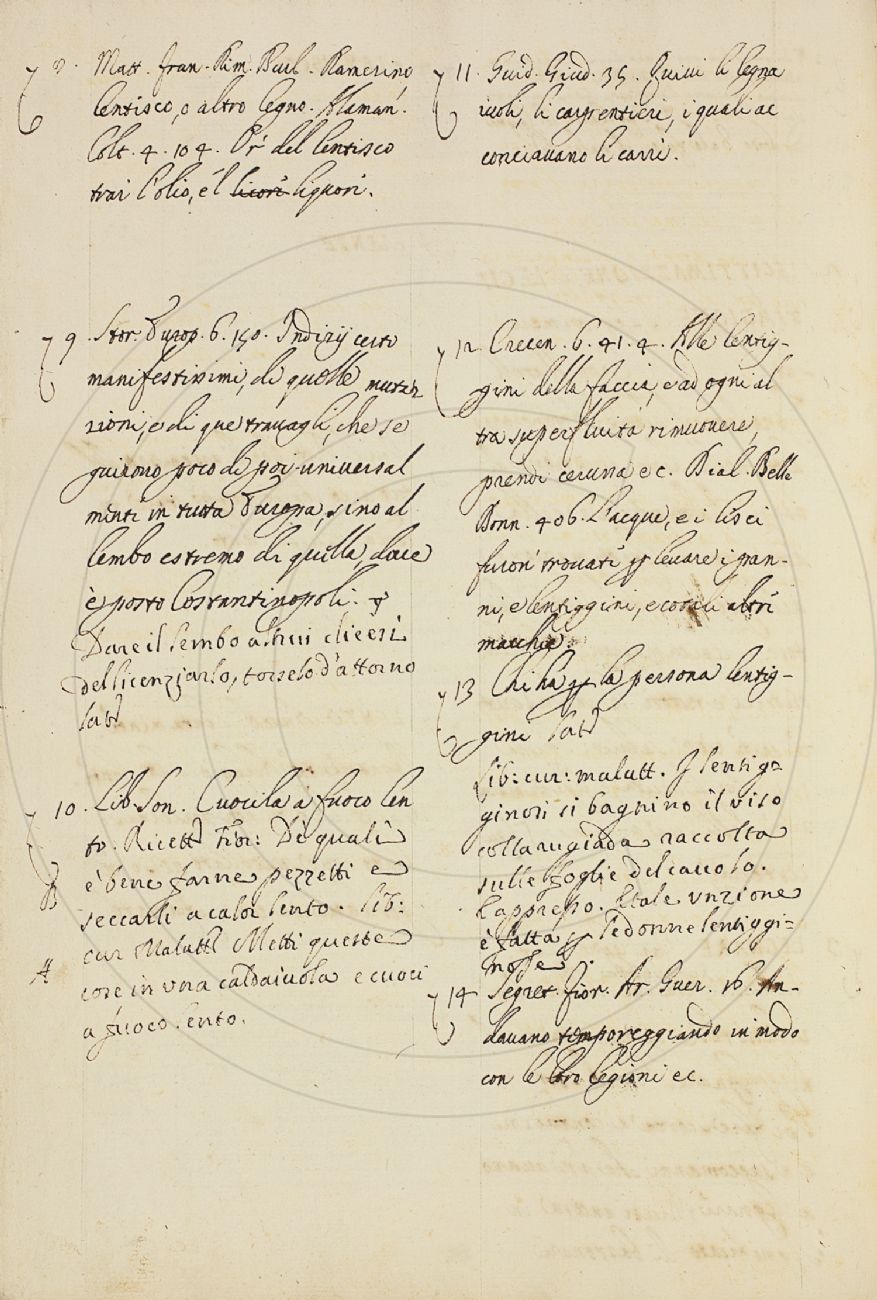 8. Matt. Fran. Rim. Burl. Ramerino
lentisco, o altro legno. Alaman.
Colt. 4. 104. Or' del lentisco
trai l'olio, e'l licori liquori.
9. Stor. Europ. 6. 150. Indizij certi
manifestissimi, di quelle mutaz
zioni, e di que' travagli, che se
guirono poco di poi universal
mente in tutta Europa, sino al
lembo estremo di quella, dove
è posto Costantinopoli.
Dare il lembo altrui dicesi
del licenziarlo, torselo d'attorno
Lat
10. Lib. Son. Cuocila a fuoco len
to. Ricett Fior: Di quali
è bene farne pezzetti e
seccarli a calor lento. Lib:
cur Malatt Metti queste
cose in una caldaiuola e cuoci
a fuoco lento.
A
11. Guid. Giud. 35. Quivi li legna
iuoli, li carpentieri, i quali ac
conciavano li carri.
12. Crescen. 6. 41. 4. Alle lentig-
gini della faccia, e ad ogni al
tra superfluità rimuovere,
prendi cerussa ec. Dial. Belle
Donn. 406. L'acque, e i lisci
furon trovati per levare i pan-
ni, e lentiggini, e cotali altri
macchie.
13 Chi ha per la persona lentig-
gini Lat
Lib: cur: malatt. I lentig=
ginosi si bagnino il viso
colla rugiada raccolta
sulle foglie del cavolo.
E appresso. E tale unzione
è fatta per le donne lentiggi=
nose.
14 Segret. Fior. Ar. Guer. 16. An-
davano temporeggiando in modo
con le loro legioni ec.